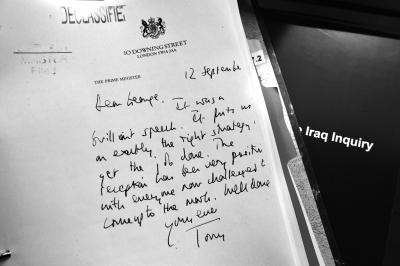 DECLASSIFIED
10 DOWNING STREET
LONDON SW1A 2AA
THE PRIME MINISTER
12 September
Dear George. It was a
brilliant speech. It puts us
on exactly the right strategy,
to
get the job done. The
reception has been very positive
with everyone now challenged to
come up to the mark. Well done
yours ever
Tony
.2
e Iraq Inquiry